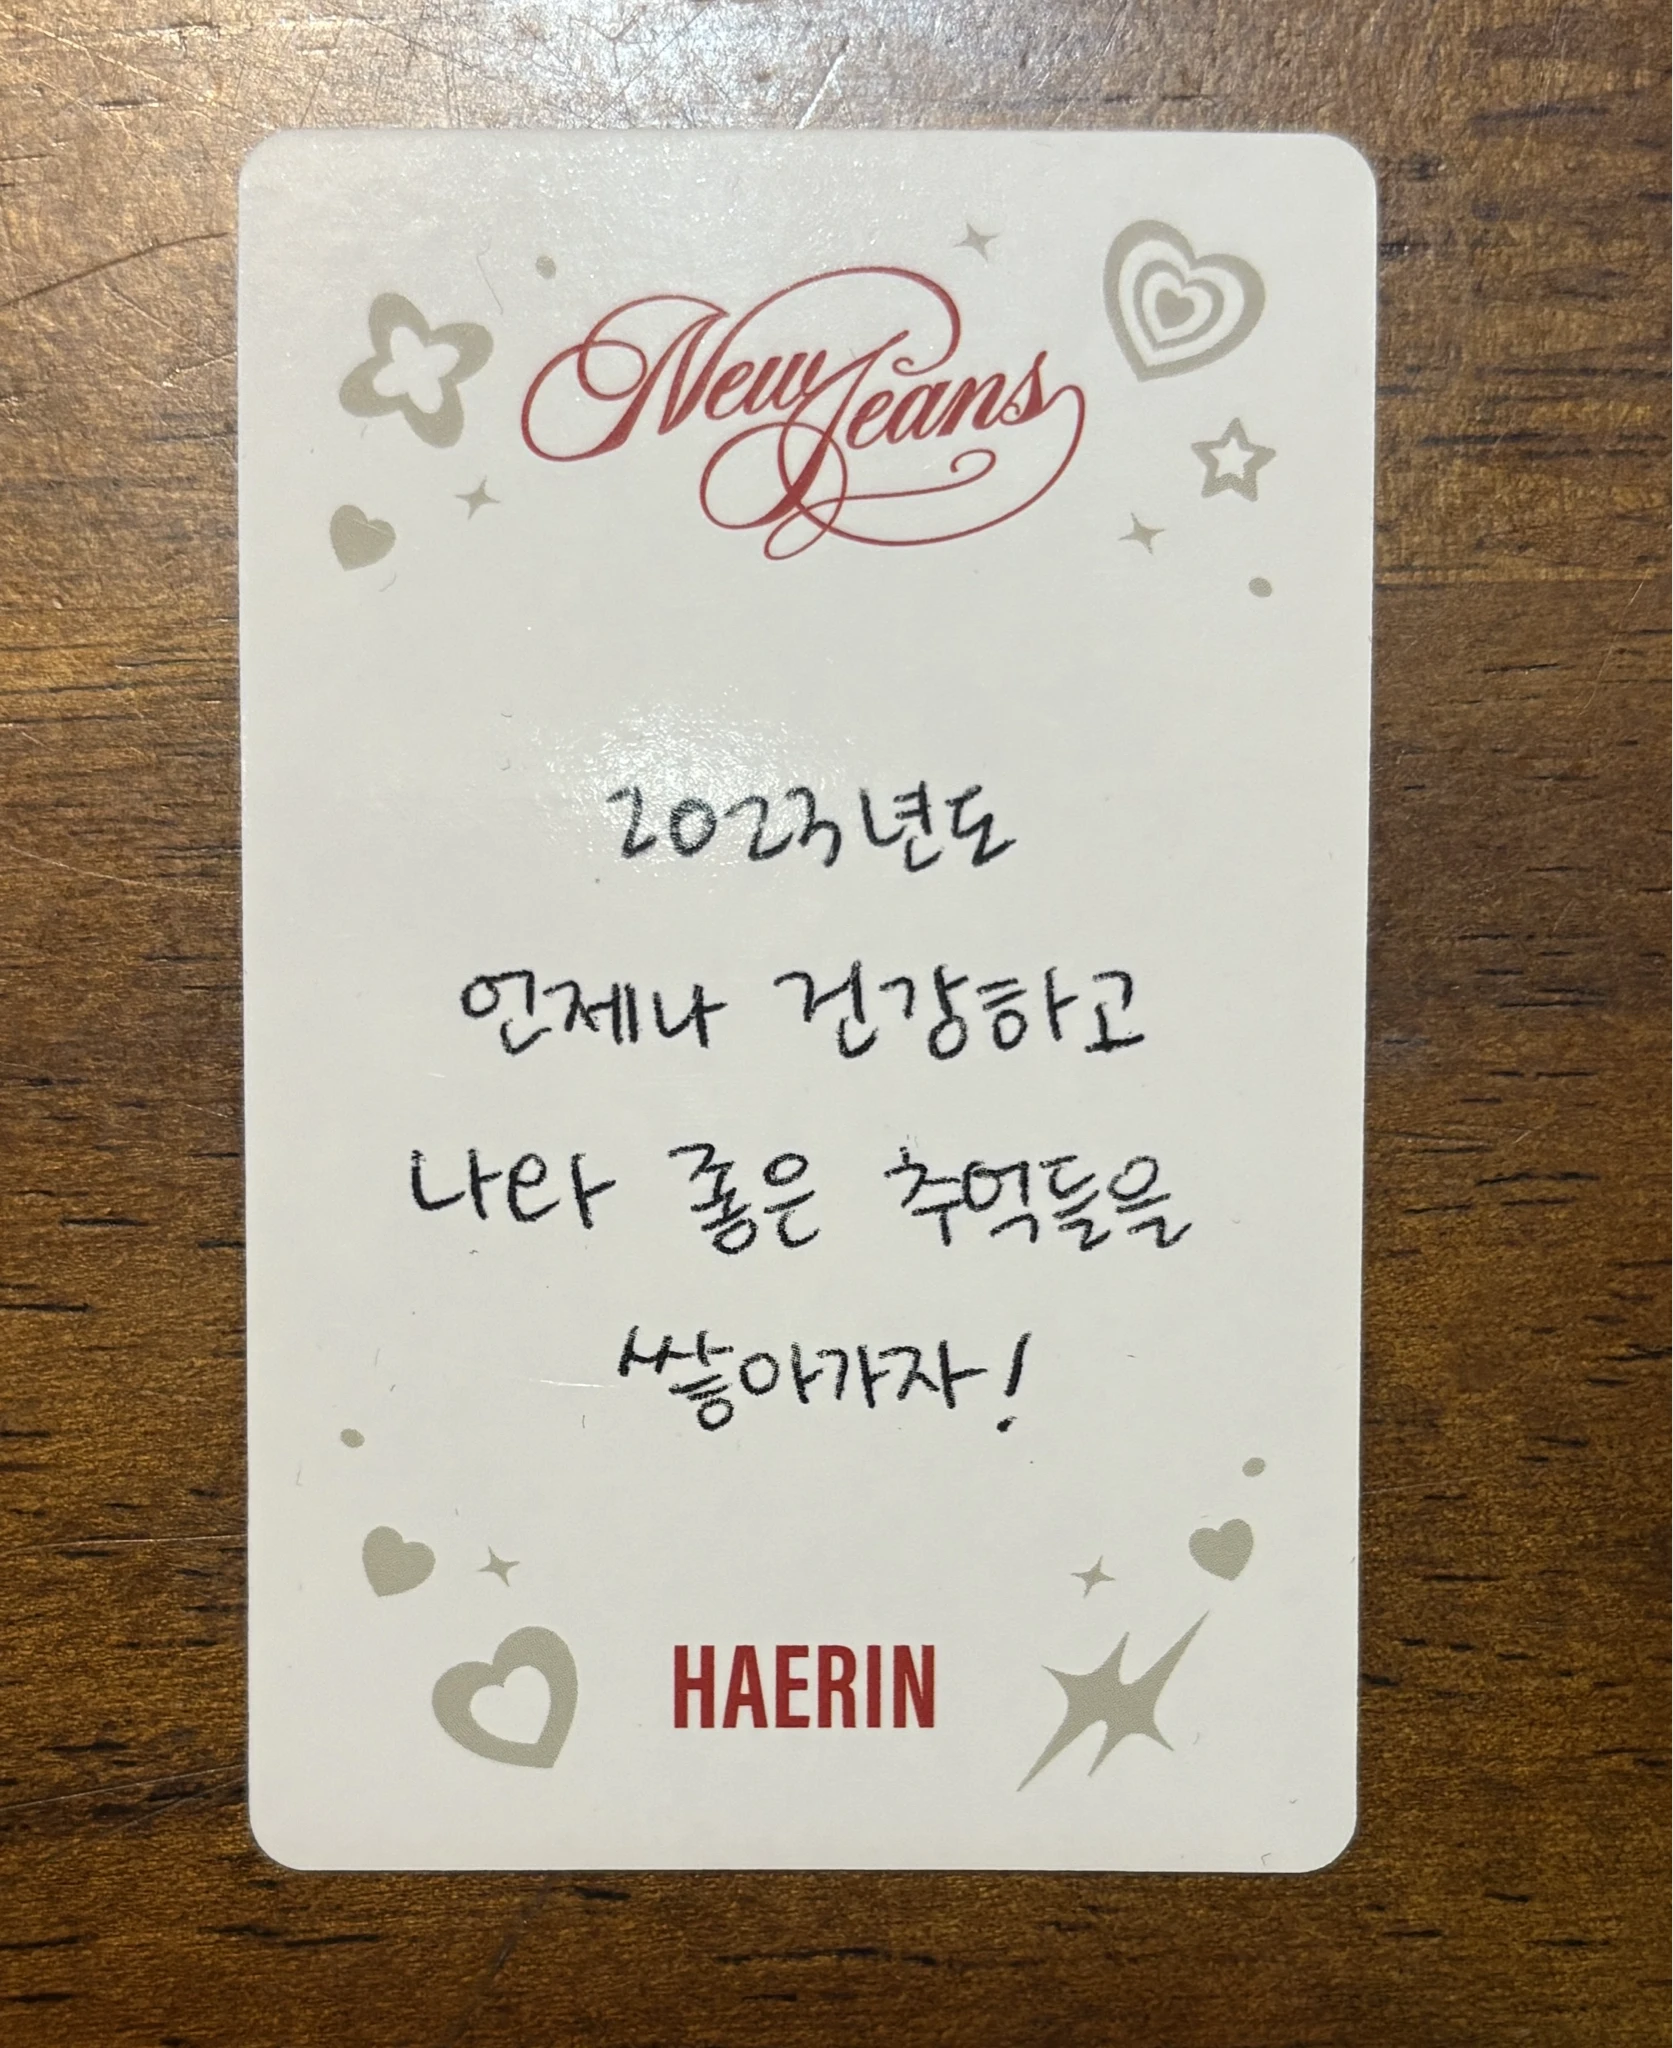 NewJeans
2023년도
언제나 건강하고
나와 좋은 추억들을
쌓아가자!
HAERIN